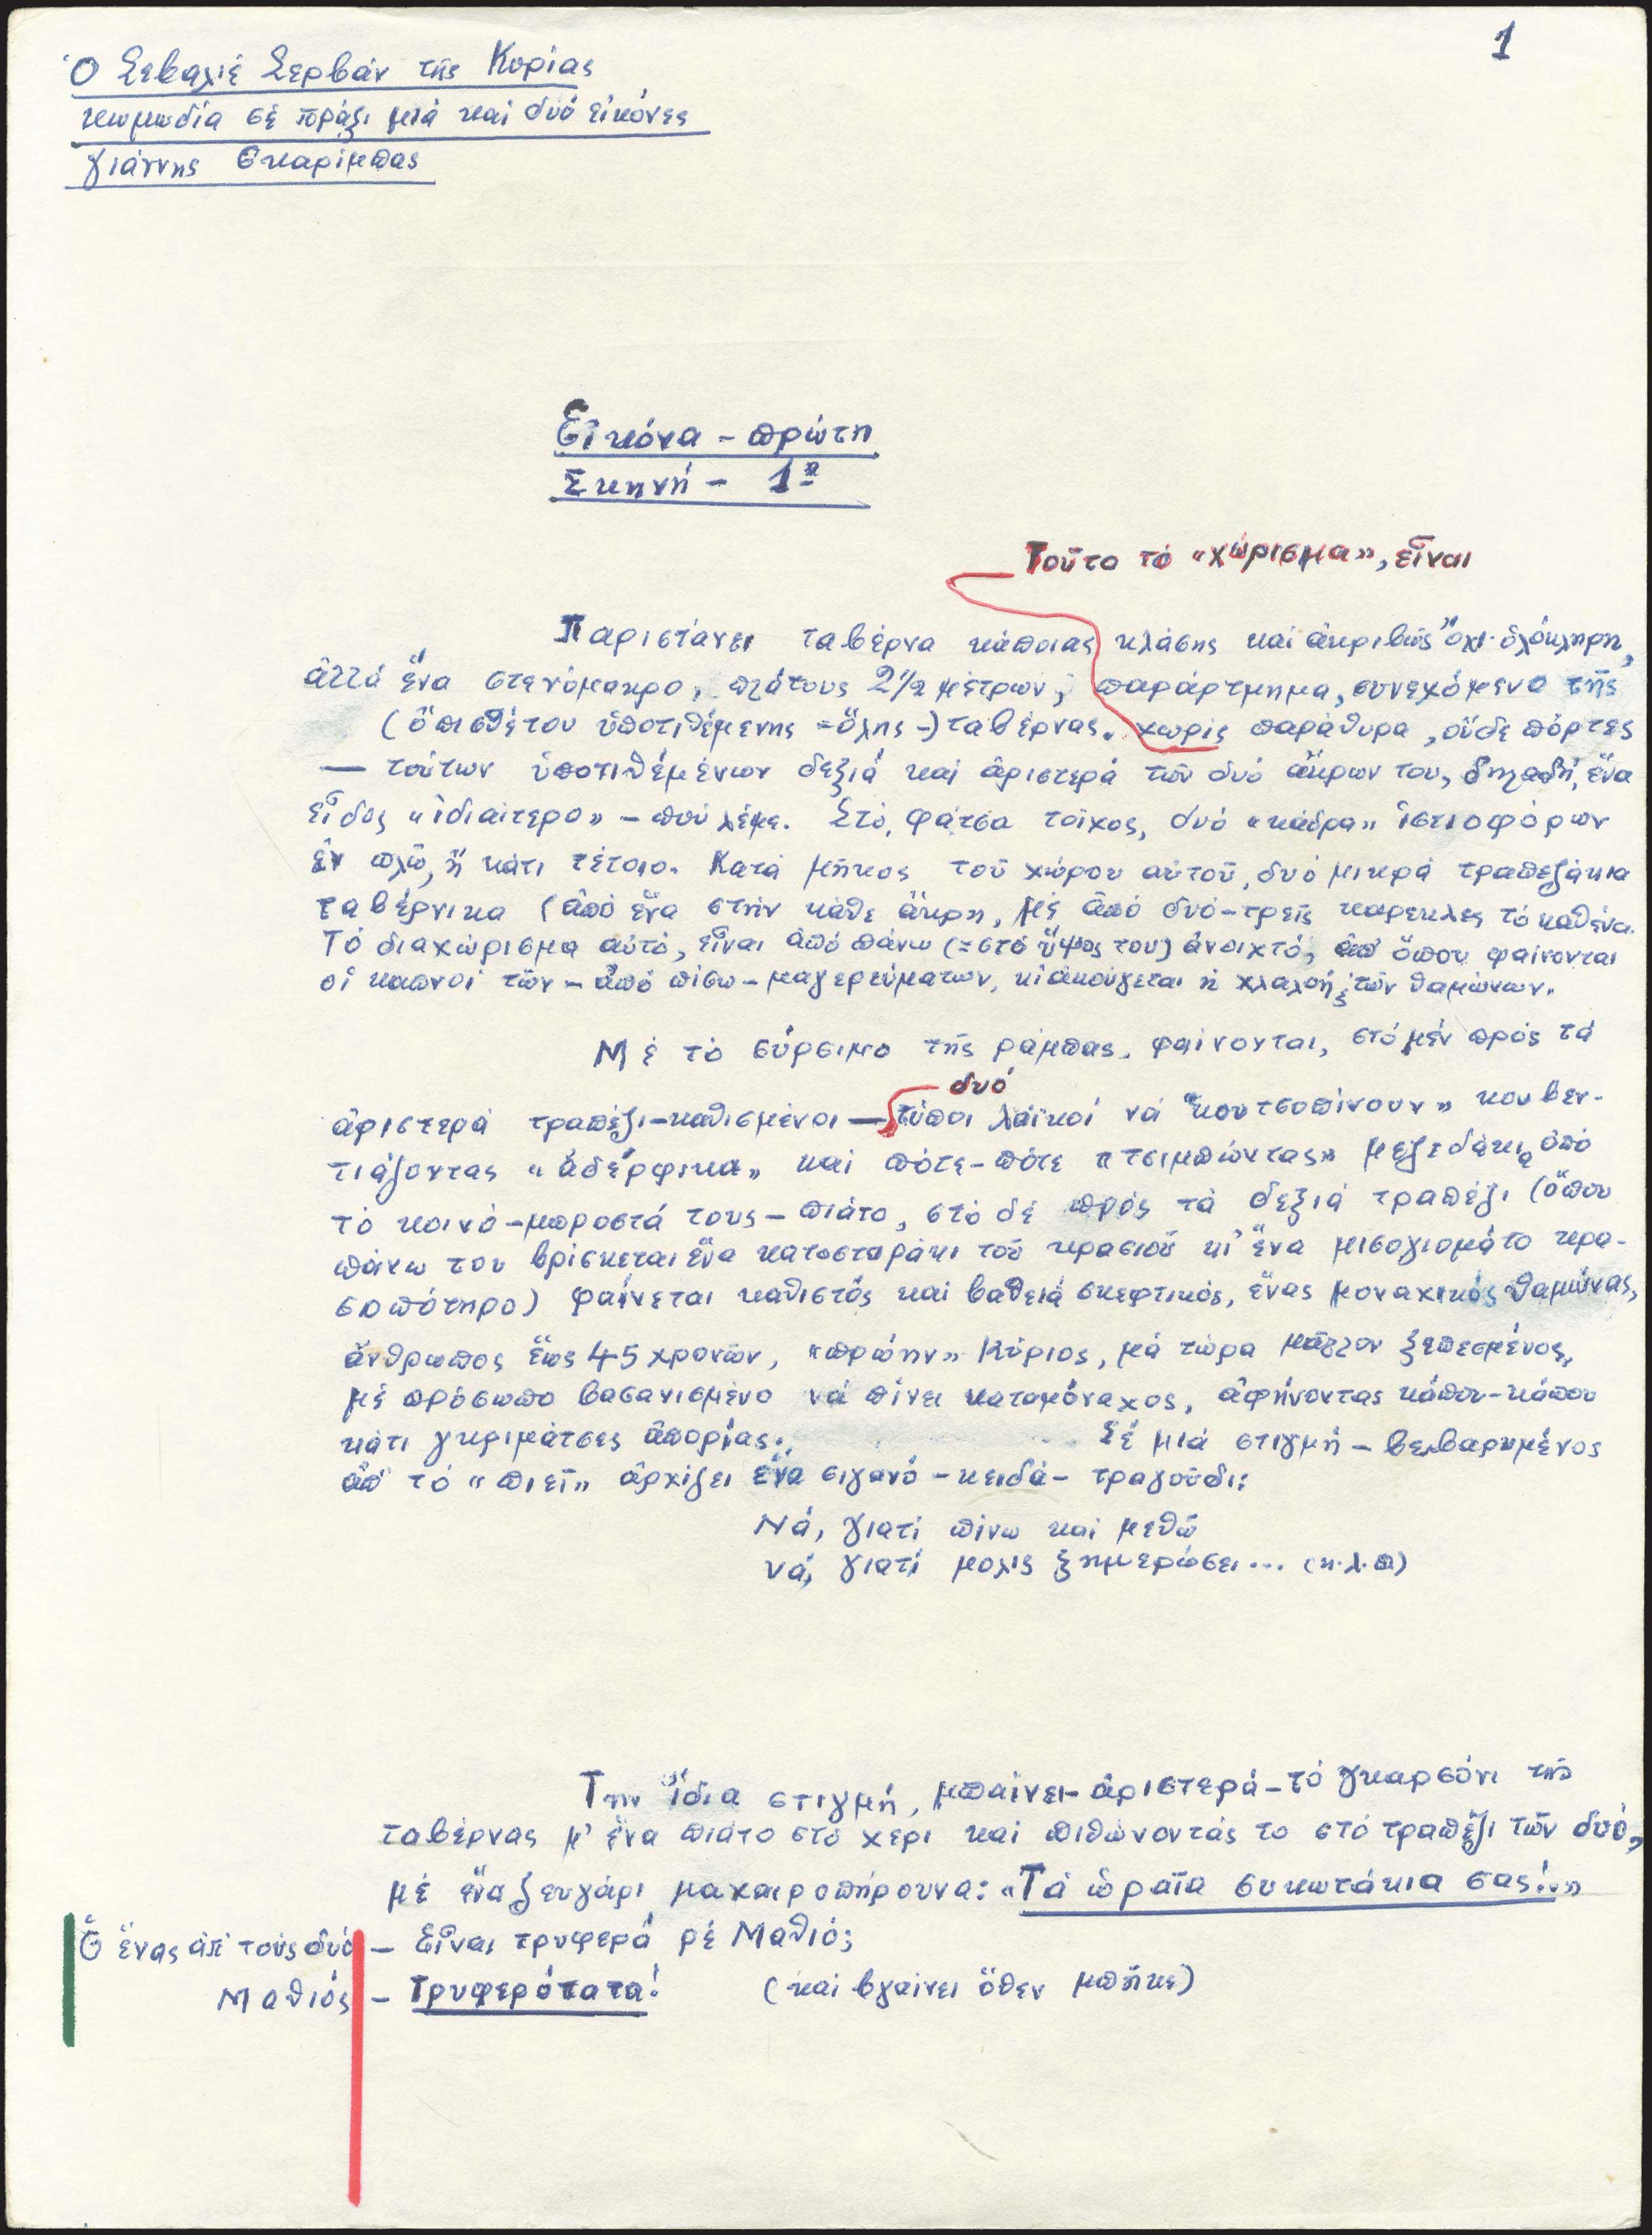 1
Ὁ Σεβαλιέ Σερβάν τῆς Κυρίας
κωμωδία σέ πράξι μιά καί δυό εἰκόνες
Γιάννης Σκαρίμπας
Εἰκόνα - πρώτη
Σκηνή - 1η
Τοῦτο τό «χώρισμα», εἶναι
Παριστάνει ταβέρνα κάποιας κλάσης καί ἀκριβῶς ὄχι ὁλόκληρη,
ἀλλά ἕνα στενόμακρο, πλάτους 2 1/2 μέτρων, παράρτημα, συνεχόμενο τῆς
(ὄπισθέ του ὑποτιθέμενης =ὅλης-) ταβέρνας. χωρίς παράθυρα, οὔδε πόρτες
— τούτων ὑποτιθέμένων δεξιά καί ἀριστερά τῶν δυό ἄκρων του, δηλαδή, ἕνα
εἶδος «ἰδιαίτερο» - πού λέμε. Στό, φάτσα τοῖχος, δυό «κάδρα» ἱστιοφόρων
ἐν πλῶ, ἤ κάτι τέτοιο. Κατά μῆκος τοῦ χώρου αὐτοῦ, δυό μικρά τραπεζάκια
ταβέρνικα (ἀπό ἕνα στήν κάθε ἄκρη, μέ ἀπό δυό-τρεῖς καρεκλες τό καθένα.
Τό διαχώρισμα αὐτό, εἶναι ἀπό πάνω (=στό ὕψος του) ἀνοιχτό, ἀπ' ὅπου φαίνονται
οἱ καπνοί τῶν - ἀπό πίσω - μαγερεύματων, κι ἀκούγεται ἡ χλαλοή τῶν θαμώνων.
Μέ τό σύρσιμο τῆς ράμπας, φαίνονται, στό μέν πρός τά
δυό
ἀριστερά τραπέζι-καθισμένοι — τύποι λαϊκοί νά "κουτσοπίνουν» κουβεν-
τιάζοντας «ἀδέρφικα» καί πότε-πότε «τσιμπώντας» μεζεδάκια ἀπό
τό κοινό-μπροστά τους - πιάτο, στό δέ πρός τά δεξιά τραπέζι (ὅπου
πάνω του βρίσκεται ἕνα κατοσταράκι τοῦ κρασιοῦ κι' ἕνα μισογιομάτο κρα-
σοπότηρο) φαίνεται καθιστός καί βαθειά σκεφτικός, ἕνας μοναχικός θαμώνας,
ἄνθρωπος ἕως 45 χρονῶν, «πρώην» Κύριος, μά τώρα μᾶλλον ξεπεσμένος,
μέ πρόσωπο βασανισμένο νά πίνει καταμόναχος, ἀφήνοντας κάπου-κάπου
κάτι γκριμάτσες ἀπορίας. Σέ μιά στιγμή - βεβαρυμένος
ἀπ' τό «πιεῖ» ἀρχίζει ἕνα σιγανό - κειδά - τραγοῦδι:
Νά, γιατί πίνω καί μεθῶ
νά, γιατί μολις ξημερώσει... (κ.λ.π)
Την ἴδια στιγμή, μπαίνει-ἀριστερά-τό γκαρσόνι τῆς
ταβέρνας μ' ἕνα πιάτο στό χερι καί πιθώνοντάς το στό τραπέζι τῶν δυό,
μέ ἕνα ζευγάρι μαχαιροπήρουνα: «Τά ὡραῖα συκωτάκια σας!..»
Ὁ ἕνας ἀπ' τούς δυό - Εἶναι τρυφερά ρέ Μαθιό;
Μαθιός - Τρυφερότατα! (καί βγαίνει ὅθεν μπῆκε)